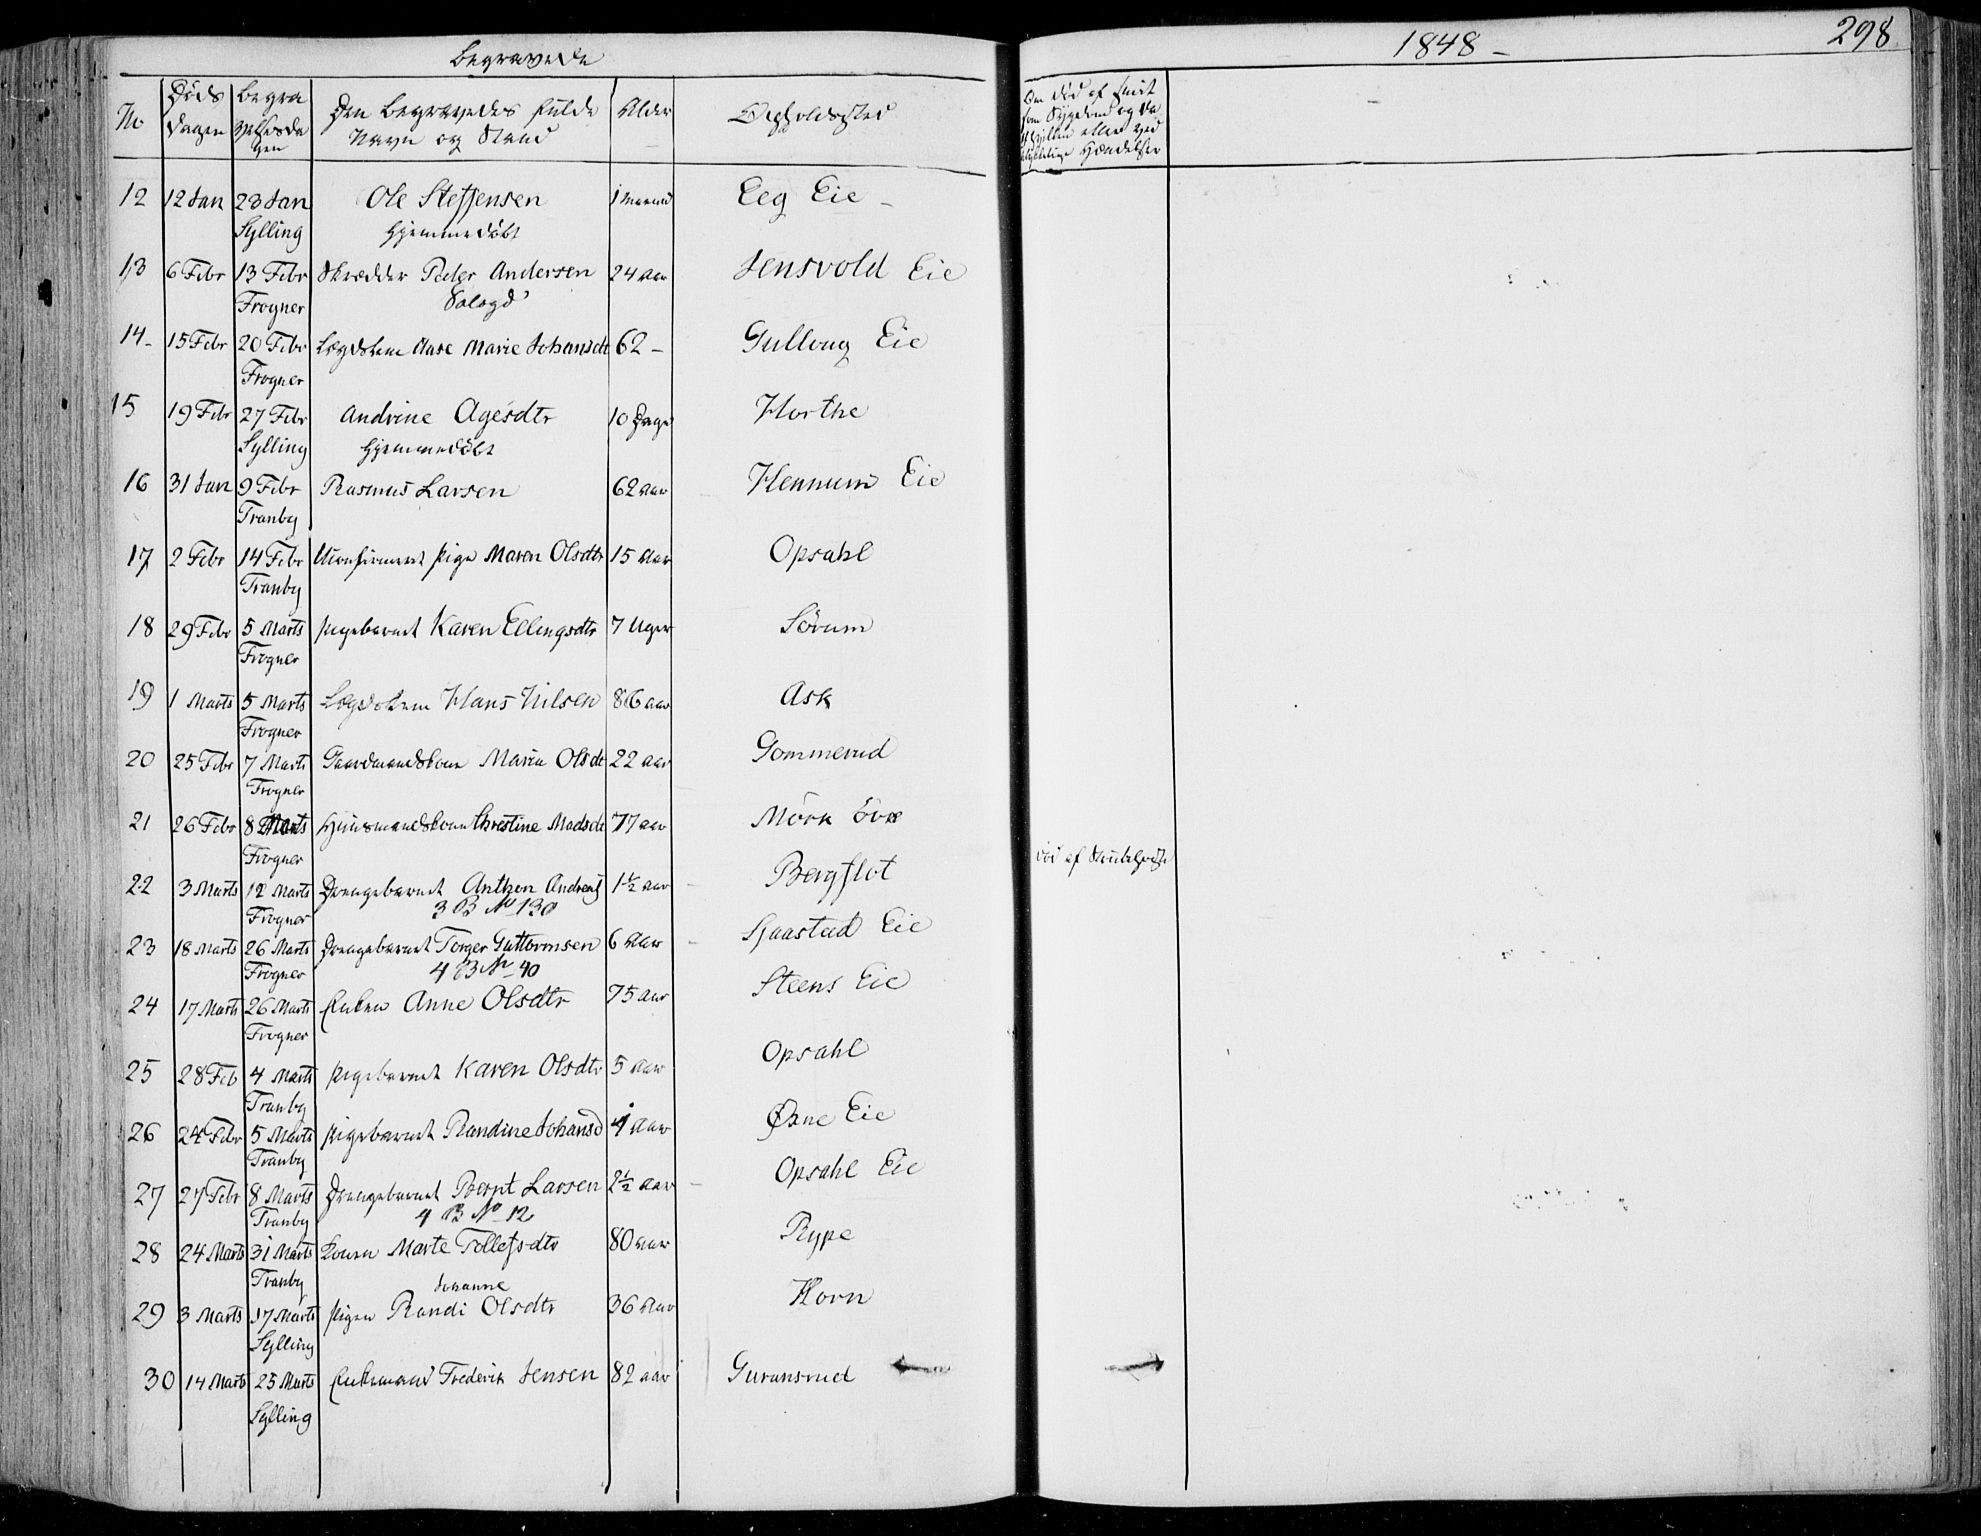 Begravede
1848 –
298
No
Døds
dagen
Begra
velsesda
gen
Den Begravedes fulde
Navn og Stand
Alder
Opholdssted
Om død af smit
som Sygdom og da
hvilken eller ved
ulykkelige Hændelser
12 12 Jan 23 Jan Ole Steffensen 1 Maaned Eeg Eie –
Sylling Hjemmedøbt
13 6 Febr 13 Febr Skrædder Peder Andersen 24 Aar Jensvold Eie
Frogner
14 – 15 Febr 20 Febr Lægdslem Aase Marie Johansdt 62 – Gulloug Eie
Frogner
15 19 Febr 27 Febr Andrine Agesdtr 10 Dage Horthe
Sylling Hjemmedøbt
16 31 Jan 9 Febr Rasmus Larsen 62 Aar Hennum Eie
Tranby
17 2 Febr 14 Febr Uconfirmeret Pige Maren Olsdtr 15 Aar Opsahl
Tranby
18 29 Febr 5 Marts Pigebarnet Karen Ellingsdtr 7 Uger Sørum
Frogner
19 1 Marts 5 Marts Lægdslem Hans Nilsen 86 aar Ask
Frogner
20 25 Febr 7 Marts Gaardmandskone Maria Olsdt 22 aar Gommerud
Frogner
21 26 Febr 8 Marts Huusmandskone Christine Madsdt 77 aar Mörk övre
Frogner
død af
22 3 Marts 12 Marts Drengebarnet Anthon Andreas 1½ aar – Bergflot
Frogner 3 B No 130
23 18 Marts 26 Marts Drengebarnet Torger Guttormsen 6 Aar – Sjaastad Eie
Frogner 4 B No 40
24 17 Marts 26 Marts Enken Anne Olsdtr 75 Aar Steens Eie
Frogner
25 28 Feb 4 Marts Pigebarnet Karen Olsdtr 5 Aar Opsahl
Tranby
26 24 Febr 5 Marts Pigebarnet Randine Johansd 4 Aar Øxne Eie
Tranby
27 27 Febr 8 Marts Drengebarnet Bernt Larsen 2½ Aar – Opsahl Eie
Tranby 4 B No 12
28 24 Marts 31 Marts Konen Marte Tollefsdtr 80 Aar Rype
Tranby
Johanne
29 3 Marts 17 Marts Pigen Randi Olsdtr 36 Aar Horn
Sylling
30 14 Marts 25 Marts Enkemand Frederik Jensen 82 aar Guransrud
Sylling